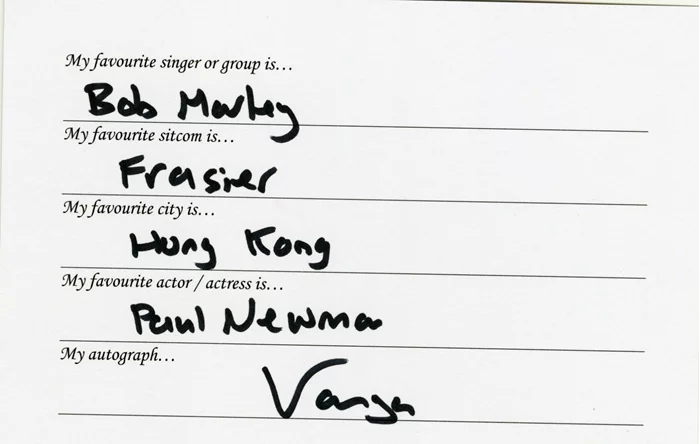 My favourite singer or group is...
Bob Marley
My favourite sitcom is...
Frasier
My favourite city is...
Hong Kong
My favourite actor / actress is...
Paul Newman
My autograph...